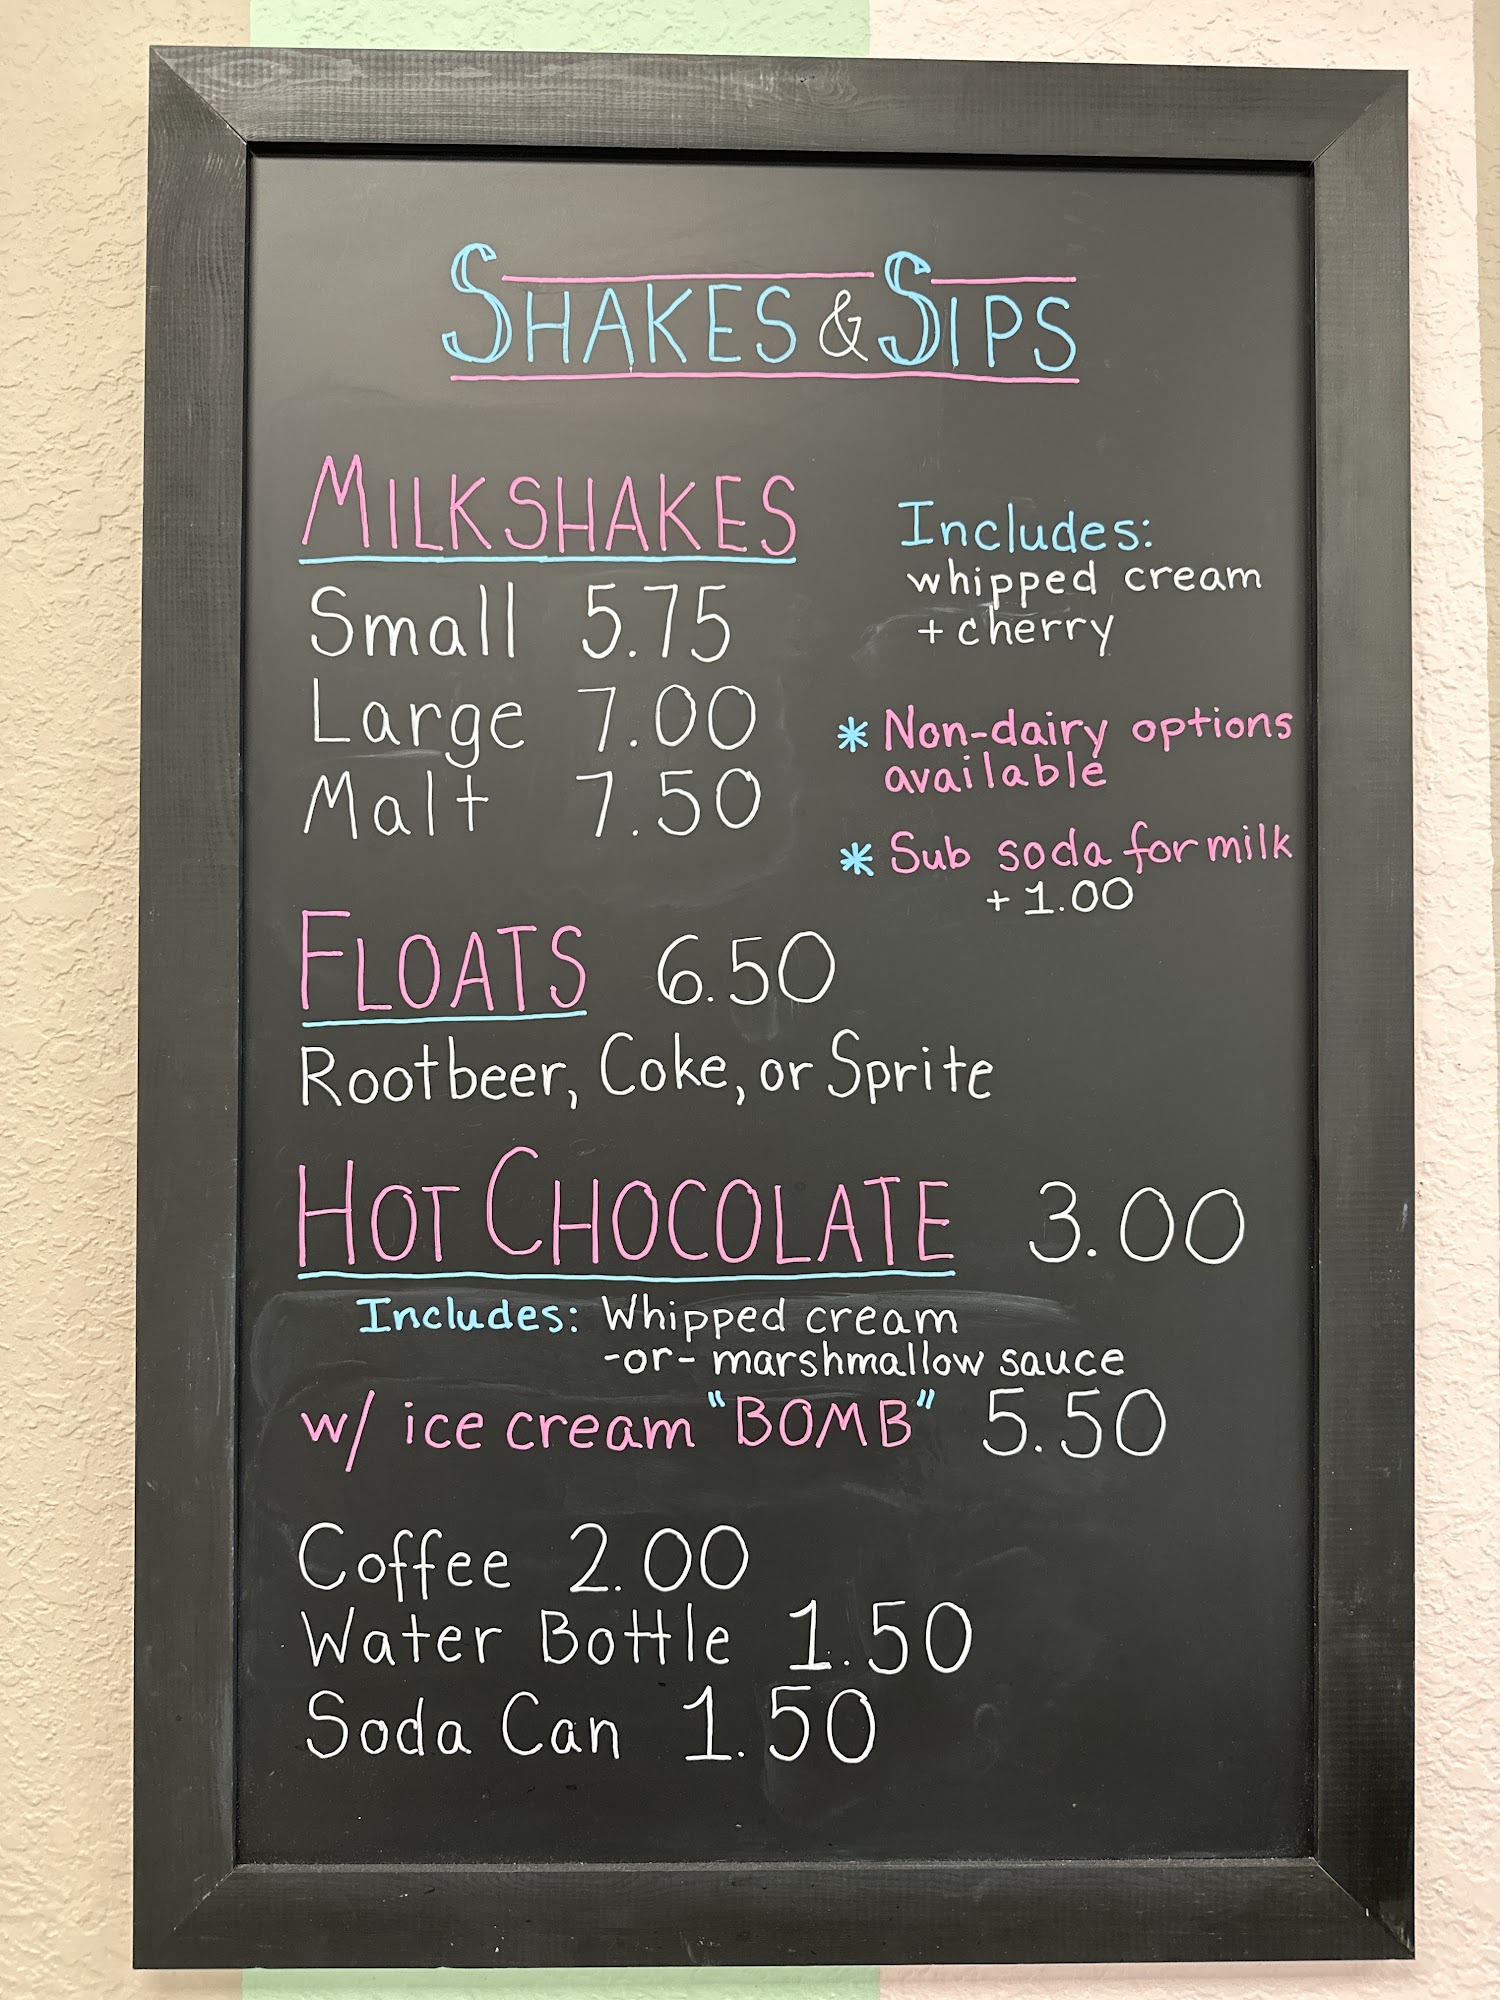 SHAKES & SIPS
MILKSHAKES
Small 5.75
Large 7.00
Malt 7.50
Includes:
whipped cream
+ cherry
* Non-dairy options
available
* Sub soda for milk
+ 1.00
FLOATS 6.50
Rootbeer, Coke, or Sprite
HOT CHOCOLATE 3.00
Includes: Whipped cream
-or- marshmallow sauce
w/ ice cream "BOMB" 5.50
Coffee 2.00
Water Bottle 1.50
Soda Can 1.50